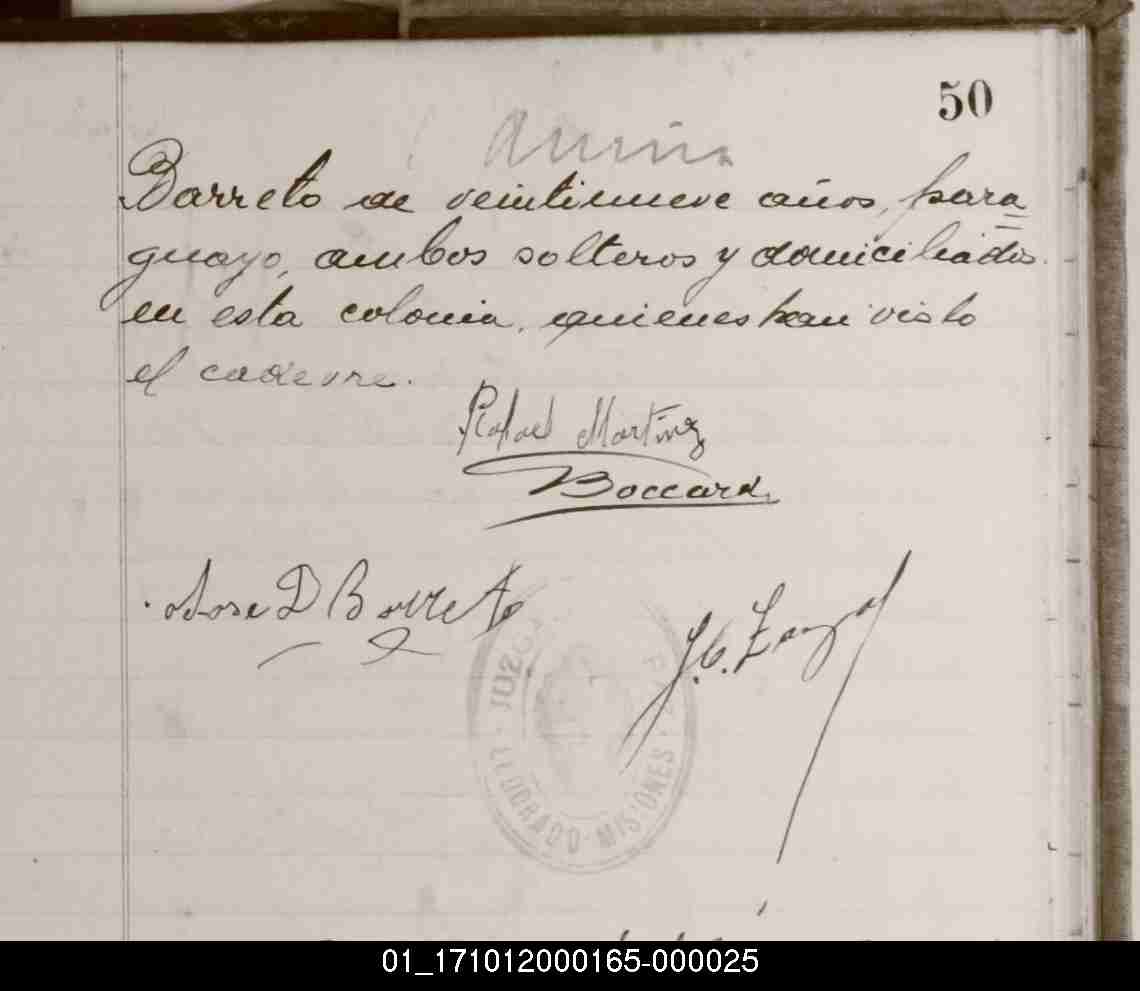 50
Barreto de veintinueve años, para=
guayo, ambos solteros y domiciliados
en esta colonia, quienes han visto
el cadevre.
Rafael Martinez
Boccard
Jose D Barreto
J. C.
JUZG PAZ
ELDORADO - MISIONES
01_171012000165-000025